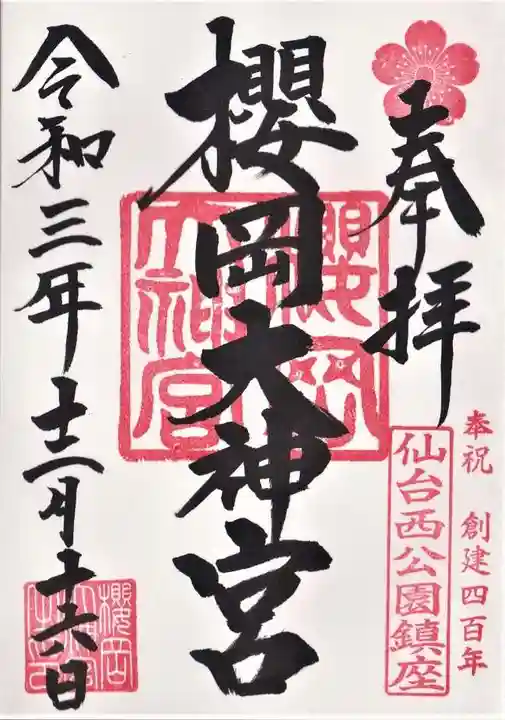 奉拝
奉祝 創建四百年
仙台西公園鎮座
櫻岡大神宮
櫻岡大神宮
令和三年十二月十六日